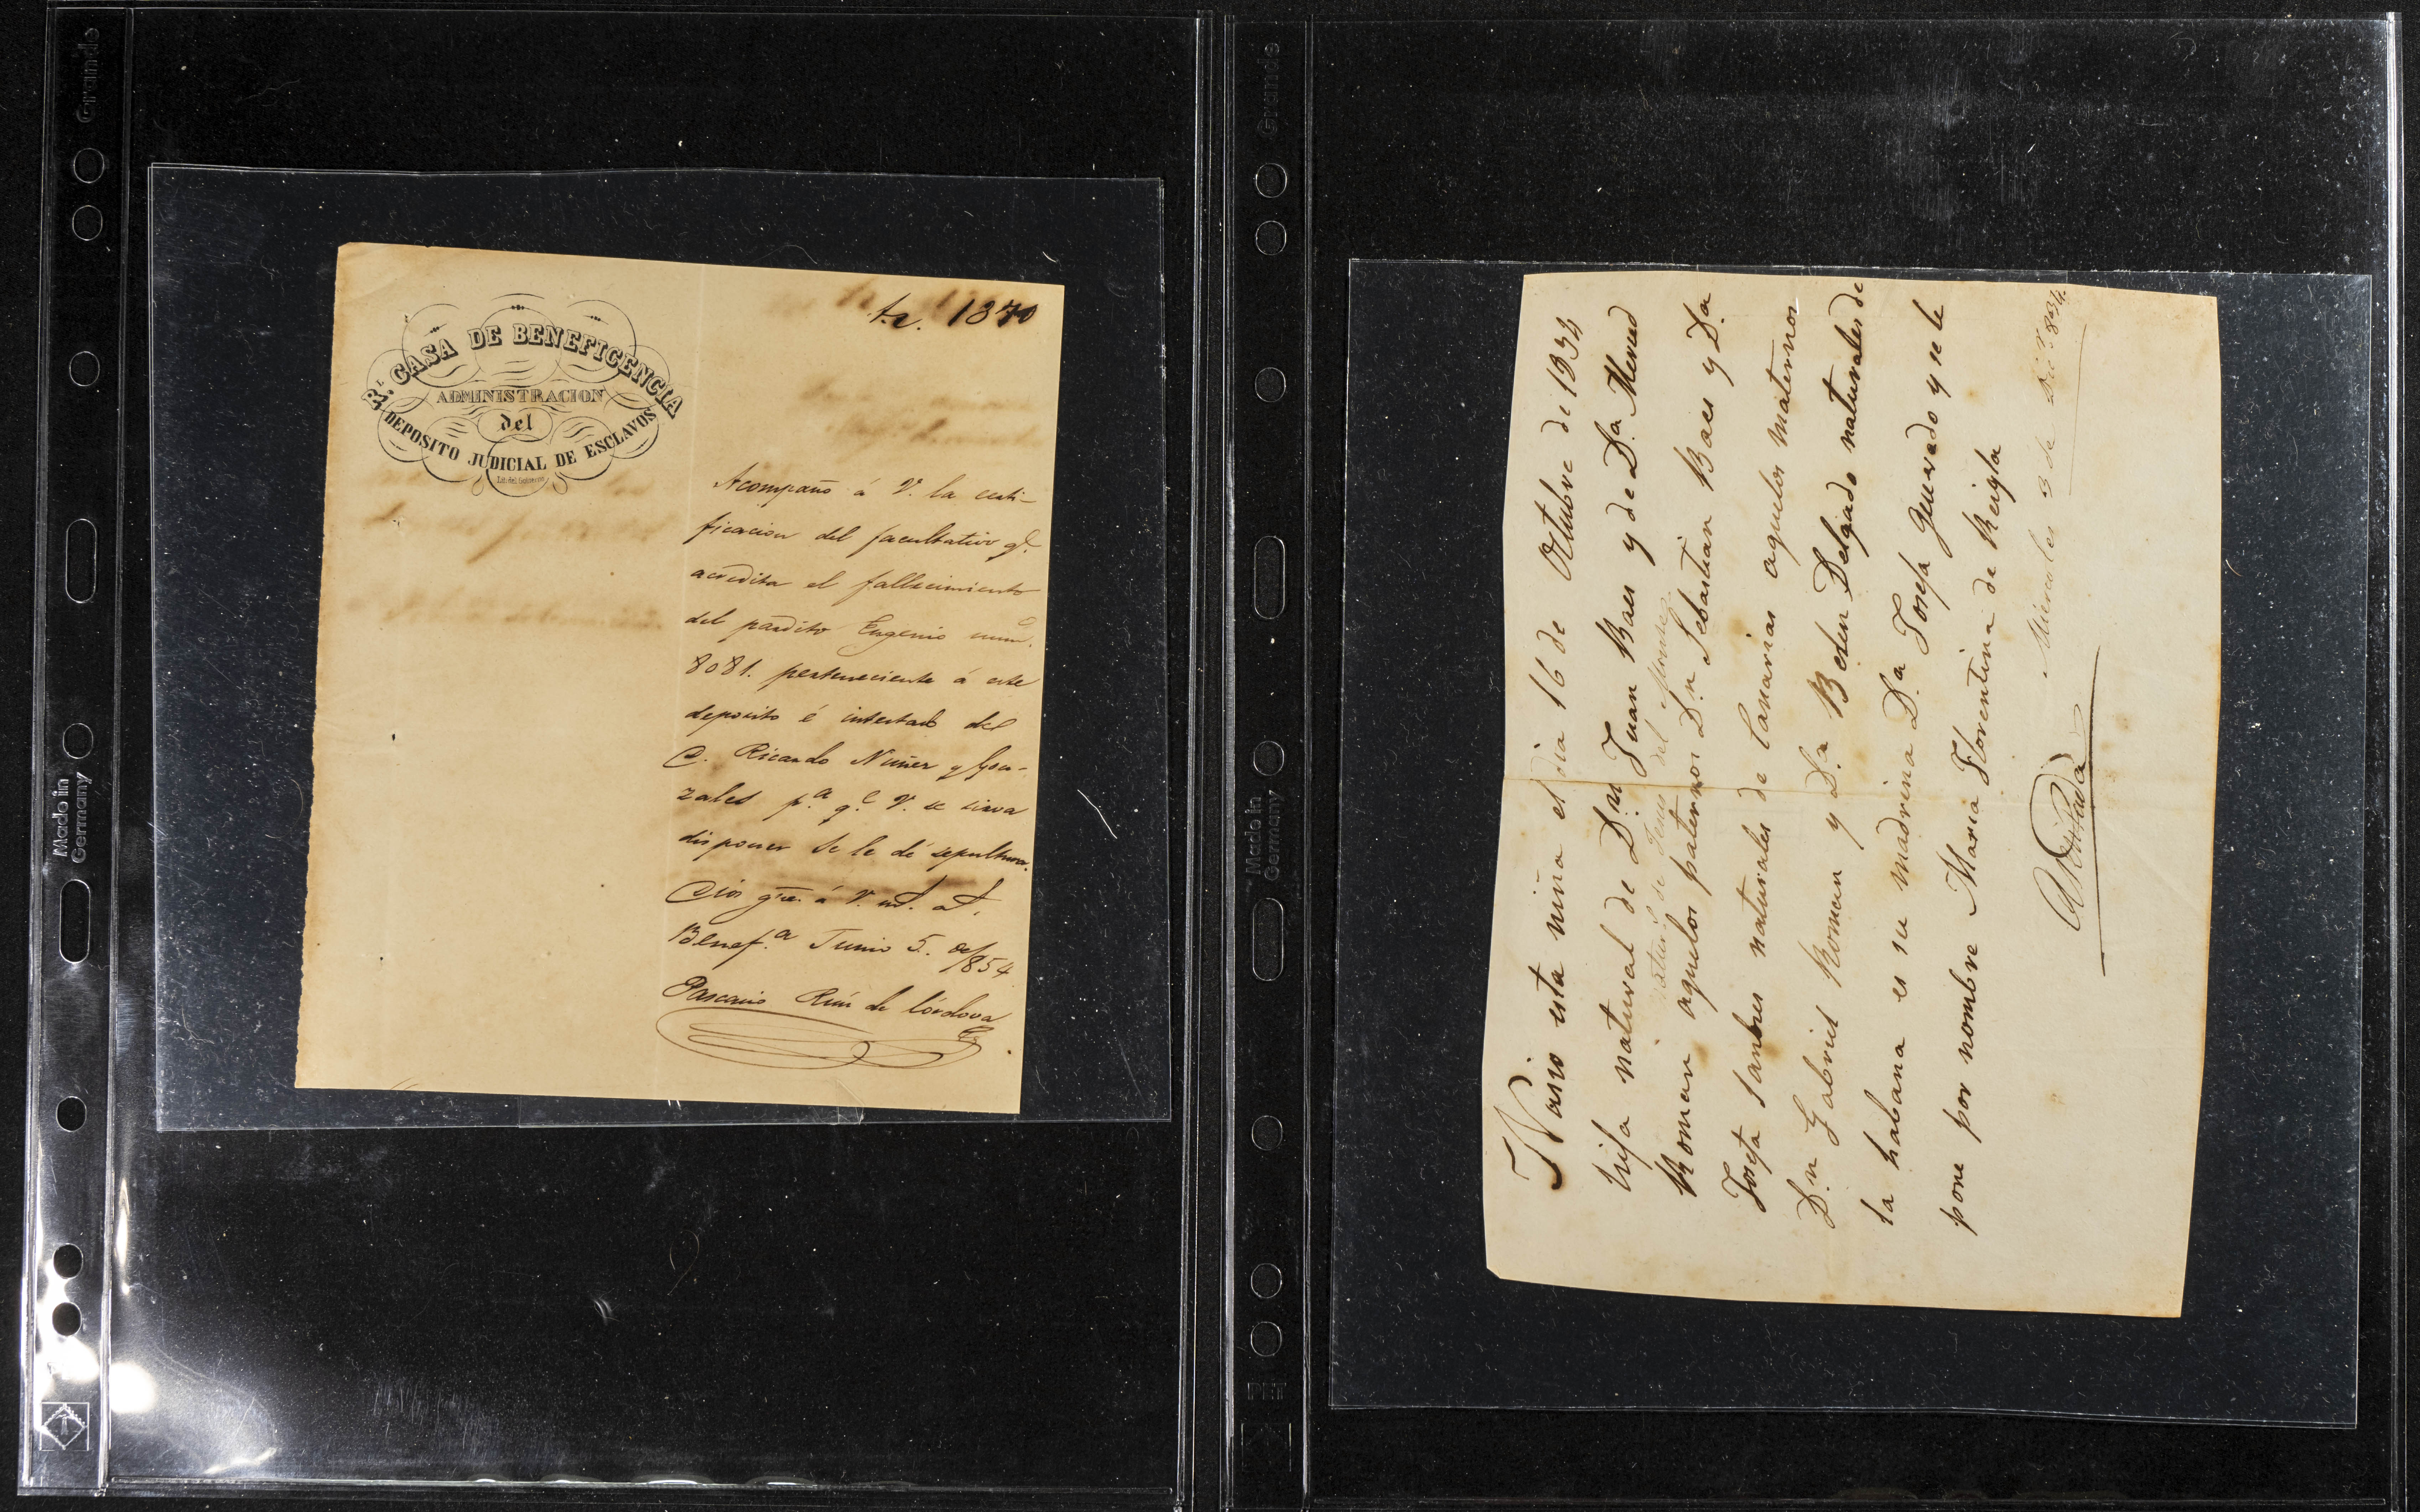 t.e. 1370
R.L CASA DE BENEFICENCIA
ADMINISTRACION
del
DEPOSITO JUDICIAL DE ESCLAVOS
Lit. del Gobierno
Acompaño á V. la certi-
ficacion del facultativo q.e
acredita el fallecimiento
del pardito Eugenio num.o
8081. perteneciente á este
deposito é intestado del
D. Ricardo Nuñez y Gon-
zales p.a q.e V. se sirva
disponer se le dé sepultura.
Dios gue. á V. m.s a.s
Benef.a Junio 5. de/854
Pascacio Ruiz de Córdova
Nasio esta niña el dia 16 de Otubre de 1834
hifa natural de D.n Juan Baes y de D.a Mersed
natur.s de Jesus del Monte
Roman aquelos paternos D.n Sebastian Baes y D.a
Josefa Santres naturales de Canarias aquelos maternos
D.n Gabriel Roman y D.a Belen Delgado naturales de
la habana es su madrina D.a Josefa Quevedo y se le
pone por nombre Maria Florentina de Reigla
Miercoles 3 de Dic.e 834.
Grande
Made in
Germany
PET
Grande
Made in
Germany
PET